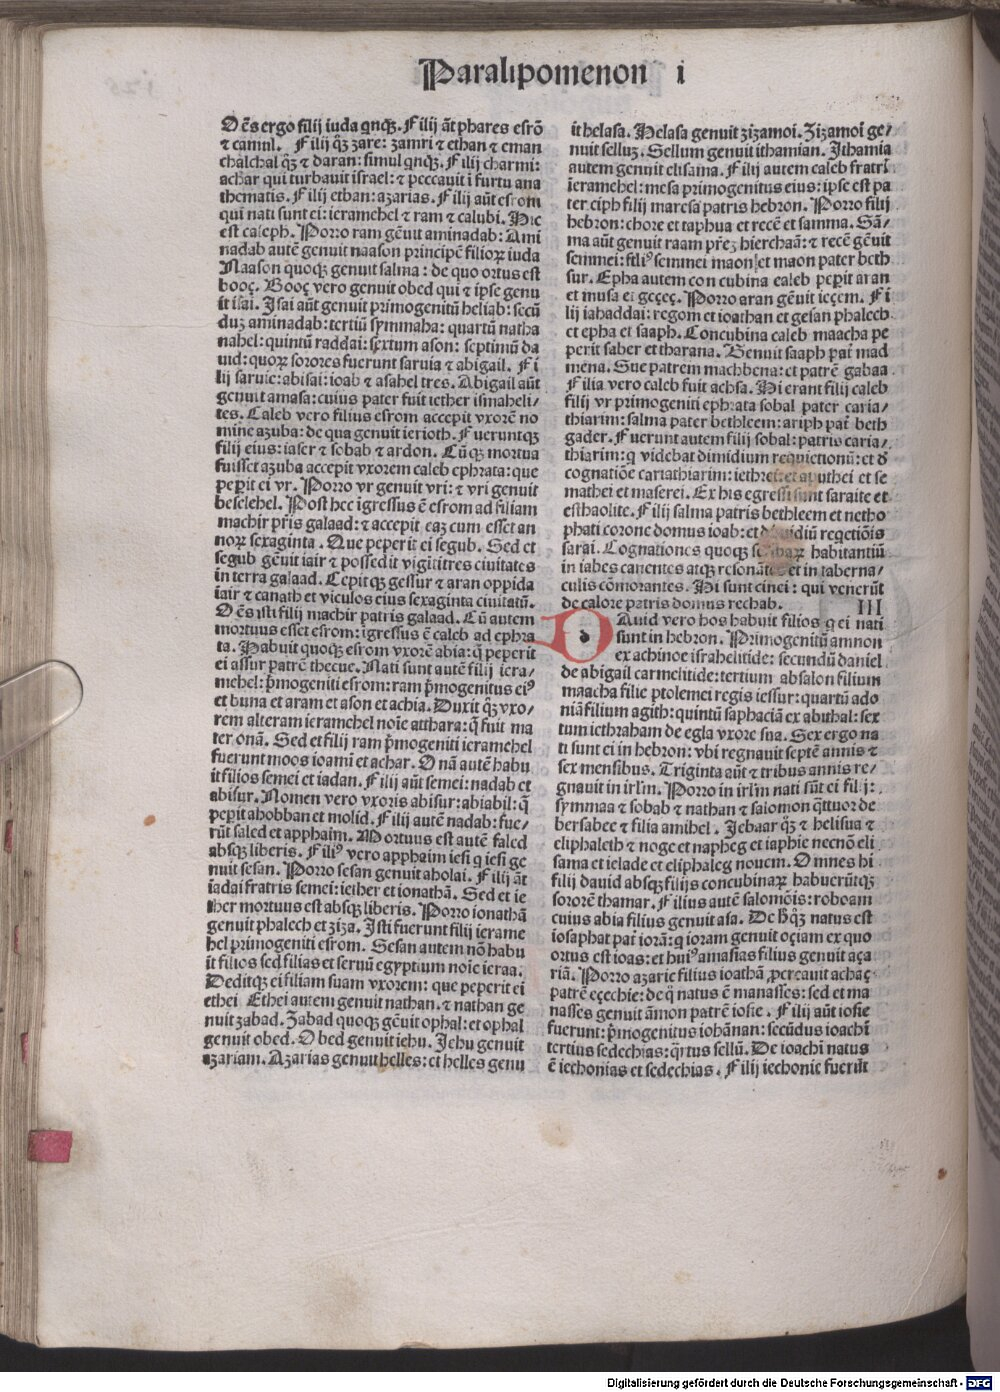 Paralipomenon i
Oēs ergo filij iuda qnqꝫ. Filij aūt phares esrō
⁊ camul. Filij qꝫ zare: zamri ⁊ ethan ⁊ eman
chalchal qꝫ ⁊ daran: simul qnqꝫ. Filij charmi:
achar qui turbauit israel: ⁊ peccauit ī furtu ana
thematis. Filij ethan: azarias. Filij aūt esrom
qui nati sunt ei: ieramehel ⁊ ram ⁊ calubi. Hic
est caleph. Porro ram gēuit aminadab: Ami
nadab autē genuit naason principē filioꝝ iuda
Naason quoqꝫ genuit salma: de quo ortus est
booç. Booç vero genuit obed qui ⁊ ipse genu
it isai. Isai aūt genuit primogenitū heliab: secū
duꝫ aminadab: tertiū symmaha: quartū natha
nahel: quintū raddai: sextum ason: septimū da
uid: quoꝝ sorores fuerunt saruia ⁊ abigail. Fi
lij saruie: abisai: ioab ⁊ asahel tres. Abigail aūt
genuit amasa: cuius pater fuit iether ismaheli/
tes. Caleb vero filius esrom accepit vxorē no
mine azuba: de qua genuit ierioth. Fueruntqꝫ
filij eius: iaser ⁊ sobab ⁊ ardon. Cūqꝫ mortua
fuisset azuba accepit vxorem caleb ephrata: que
peꝑit ei vr. Porro vr genuit vri: ⁊ vri genuit
beselehel. Post hec īgressus ē esrom ad filiam
machir pr̄is galaad: ⁊ accepit eaꝫ cum esset an
noꝝ sexaginta. Que peperit ei segub. Sed et
segub gēuit iair ⁊ possedit vigītitres ciuitates
in terra galaad. Cepitqꝫ gessur ⁊ aran oppida
iair ⁊ canath et viculos eius sexaginta ciuitatū.
Oēs isti filij machir patris galaad. Cū autem
mortuus esset esrom: īgressus ē caleb ad ephra
ta. Habuit quoqꝫ esrom vxorē abia: q̄ peperit
ei assur patrē thecue. Nati sunt autē filij iera/
mehel: p̄mogeniti esrom: ram p̄mogenitus eiꝰ
et buna et aram et ason et achia. Duxit qꝫ vxo/
rem alteram ieramehel noīe atthara: q̄ fuit ma
ter onā. Sed et filij ram p̄mogeniti ieramehel
fuerunt moos ioami et achar. Onā autē habu
it filios semei et iadan. Filij aūt semei: nadab et
abisur. Nomen vero vxoris abisur: abiabil: q̄
peꝑit ahobban et molid. Filij autē nadab: fue/
rūt saled et apphaim. Mortuus est autē saled
absqꝫ liberis. Filiꝰ vero apphaim iesi q iesi ge
nuit sesan. Porro sesan genuit aholai. Filij aūt
iadai fratris semei: iether et ionathā. Sed et ie
ther mortuus est absqꝫ liberis. Porro ionathā
genuit phalech et ziza. Isti fuerunt filij ierame
hel primogeniti esrom. Sesan autem nō habu
it filios sed filias et seruū egyptium noīe ieraa.
Deditqꝫ ei filiam suam vxorem: que peperit ei
ethei Ethei autem genuit nathan. ⁊ nathan ge
nuit zabad. Zabad quoqꝫ gēuit ophal: et ophal
genuit obed. Obed genuit iehu. Iehu genuit
azariam. Azarias genuit helles: et helles genu
it helasa. Helasa genuit zizamoi. Zizamoi ge/
nuit selluꝫ. Sellum genuit ithamian. Ithamia
autem genuit elisama. Filij autem caleb fratrī
ieramehel: mesa primogenitus eius: ipse est pa
ter ciph filij maresa patris hebron. Porro filij
hebron: chore et taphua et recē et samma. Sā/
ma aūt genuit raam pr̄eꝫ hierchaā: ⁊ recē gēuit
semmei: filiꝰ semmei maon: et maon pater beth
sur. Epha autem concubina caleb peꝑit aran
et musa et geçeç. Porro aran gēuit ieçem. Fi
lij iahaddai: regom et ioathan et gesan phalech
et epha et saaph. Concubina caleb maacha pe
perit saber et tharana. Genuit saaph pat̄ mad
mena. Sue patrem machbena: et patrē gabaa
Filia vero caleb fuit achsa. Hi erant filij caleb
filij vr primogeniti ephrata sobal pater caria/
thiarim: salma pater bethleem: ariph pat̄ beth
gader. Fuerunt autem filij sobal: patris caria/
thiarim: q videbat dimidium requietionū: et d̄
cognatiōe cariathiarim: iethrei: et aputhei et se
mathei et maserei. Ex his egressi sunt saraite et
esthaolite. Filij salma patris bethleem et netho
phati corone domus ioab: et dimidiū reqetiōis
sarai. Cognationes quoqꝫ scribaꝝ habitantiū
in iabes canentes atqꝫ resonātes et in taberna/
culis cōmorantes. Hi sunt cinei: qui venerūt
de calore patris domus rechab. III
DAuid vero hos habuit filios q ei nati
sunt in hebron. Primogenitū amnon
ex achinoe israhelitide: secundū daniel
de abigail carmelitide: tertium absalon filium
maacha filie ptolemei regis iessur: quartū ado
niā filium agith: quintū saphaciā ex abithal: sex
tum iethraham de egla vxore sua. Sex ergo na
ti sunt ei in hebron: vbi regnauit septē annis ⁊
sex mensibus. Triginta aūt ⁊ tribus annis re/
gnauit in irlm̄. Porro in irlm̄ nati sūt ei filij:
symmaa ⁊ sobab ⁊ nathan ⁊ salomon q̄ttuor de
bersabee ⁊ filia amihel. Iebaar qꝫ ⁊ helisua ⁊
eliphaleth ⁊ noge et napheg et iaphie necnō eli
sama et ielade et eliphaleg nouem. Omnes hi
filij dauid absqꝫ filijs concubinaꝝ habuerūtqꝫ
sororē thamar. Filius autē salomōis: roboam
cuius abia filius genuit asa. De hꝗꝫ natus est
iosaphat pat̄ iorā: q ioram genuit oçiam ex quo
ortus est ioas: et huiꝰ amasias filius genuit aça
riā. Porro azarie filius ioathā ꝓcreauit achaç
patrē eçechie: de q̄ natus ē manasses: sed et ma
nasses genuit āmon patrē iosie. Filij aūt iosie
fuerunt: p̄mogenitus iohānan: secūdus ioachī
tertius sedechias: q̄rtus sellū. De ioachī natus
ē iechonias et sedechias. Filij iechonie fuerūt
Digitalisierung gefördert durch die Deutsche Forschungsgemeinschaft - DFG